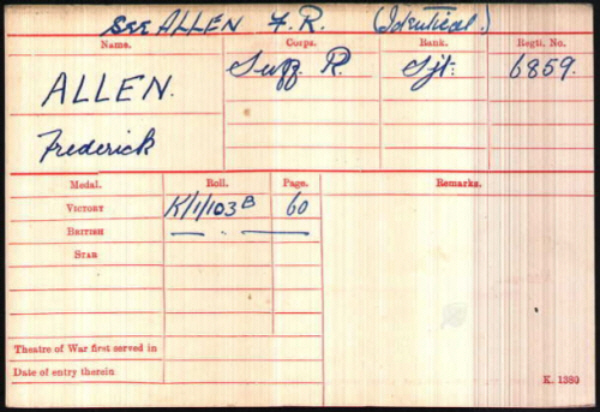 See ALLEN F.R. (Identical.)
Name. Corps. Rank. Regtl. No.
ALLEN. Suff. R. Sjt: 6859.
Frederick
Medal. Roll. Page. Remarks.
VICTORY K/1/103B 60
BRITISH — . —
STAR
Theatre of War first served in
Date of entry therein
K. 1380